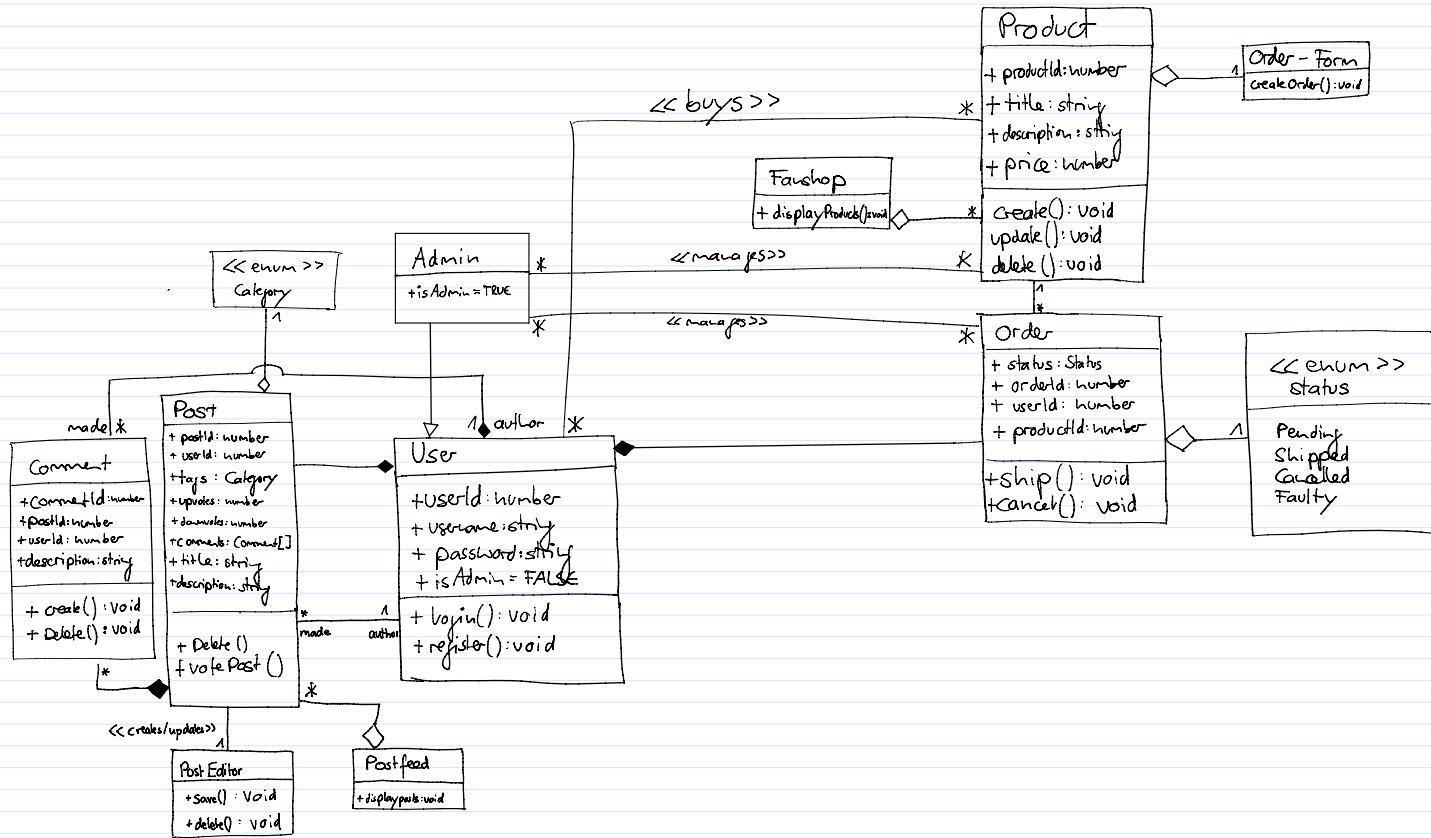 Product
+ productId: number
+ title: string
+ description: string
+ price: number
create(): void
update(): void
delete(): void
Order - Form
createOrder(): void
1
<<buys>>
*
Fanshop
+ displayProducts(): void
*
<<enum>>
Category
1
Admin
+isAdmin = TRUE
*
<<manages>>
*
*
<<manages>>
*
1
*
Order
+ status: Status
+ orderId: number
+ userId: number
+ productId: number
+ship(): void
+cancel(): void
1
<<enum>>
status
Pending
Shipped
Cancelled
Faulty
made *
1 author
*
Comment
+CommentId: number
+postId: number
+userId: number
+description: string
+ create(): void
+ Delete(): void
*
Post
+ postId: number
+ userId: number
+tags: Category
+upvotes: number
+downvotes: number
+comments: Comment[]
+title: string
+description: string
+ Delete()
+votePost()
User
+userId: number
+ username: string
+ password: string
+ isAdmin = FALSE
+ login(): void
+ register(): void
*
made
1
author
*
<<creates/updates>>
1
Post Editor
+save(): Void
+delete(): void
Postfeed
+displayposts: void